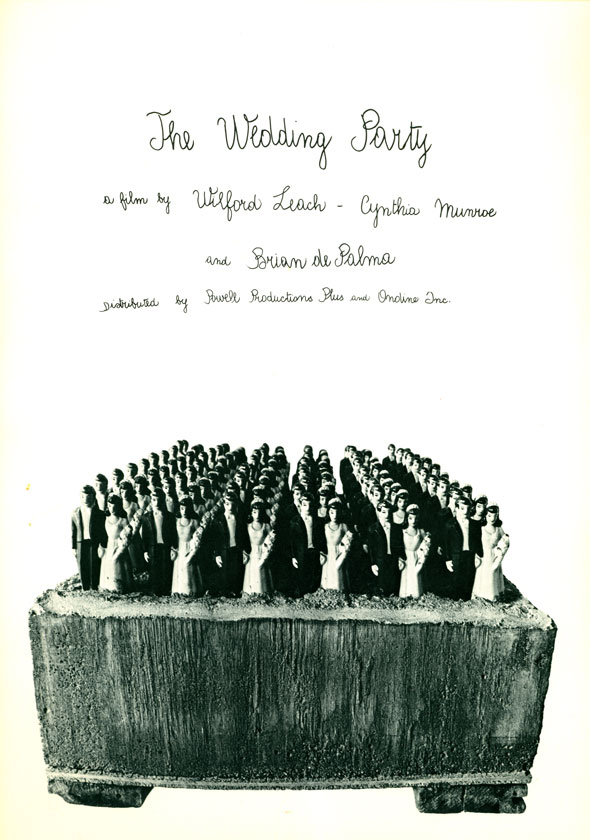 The Wedding Party
a film by Wilford Leach - Cynthia Munroe
and Brian de Palma
Distributed by Powell Productions Plus and Ondine Inc.